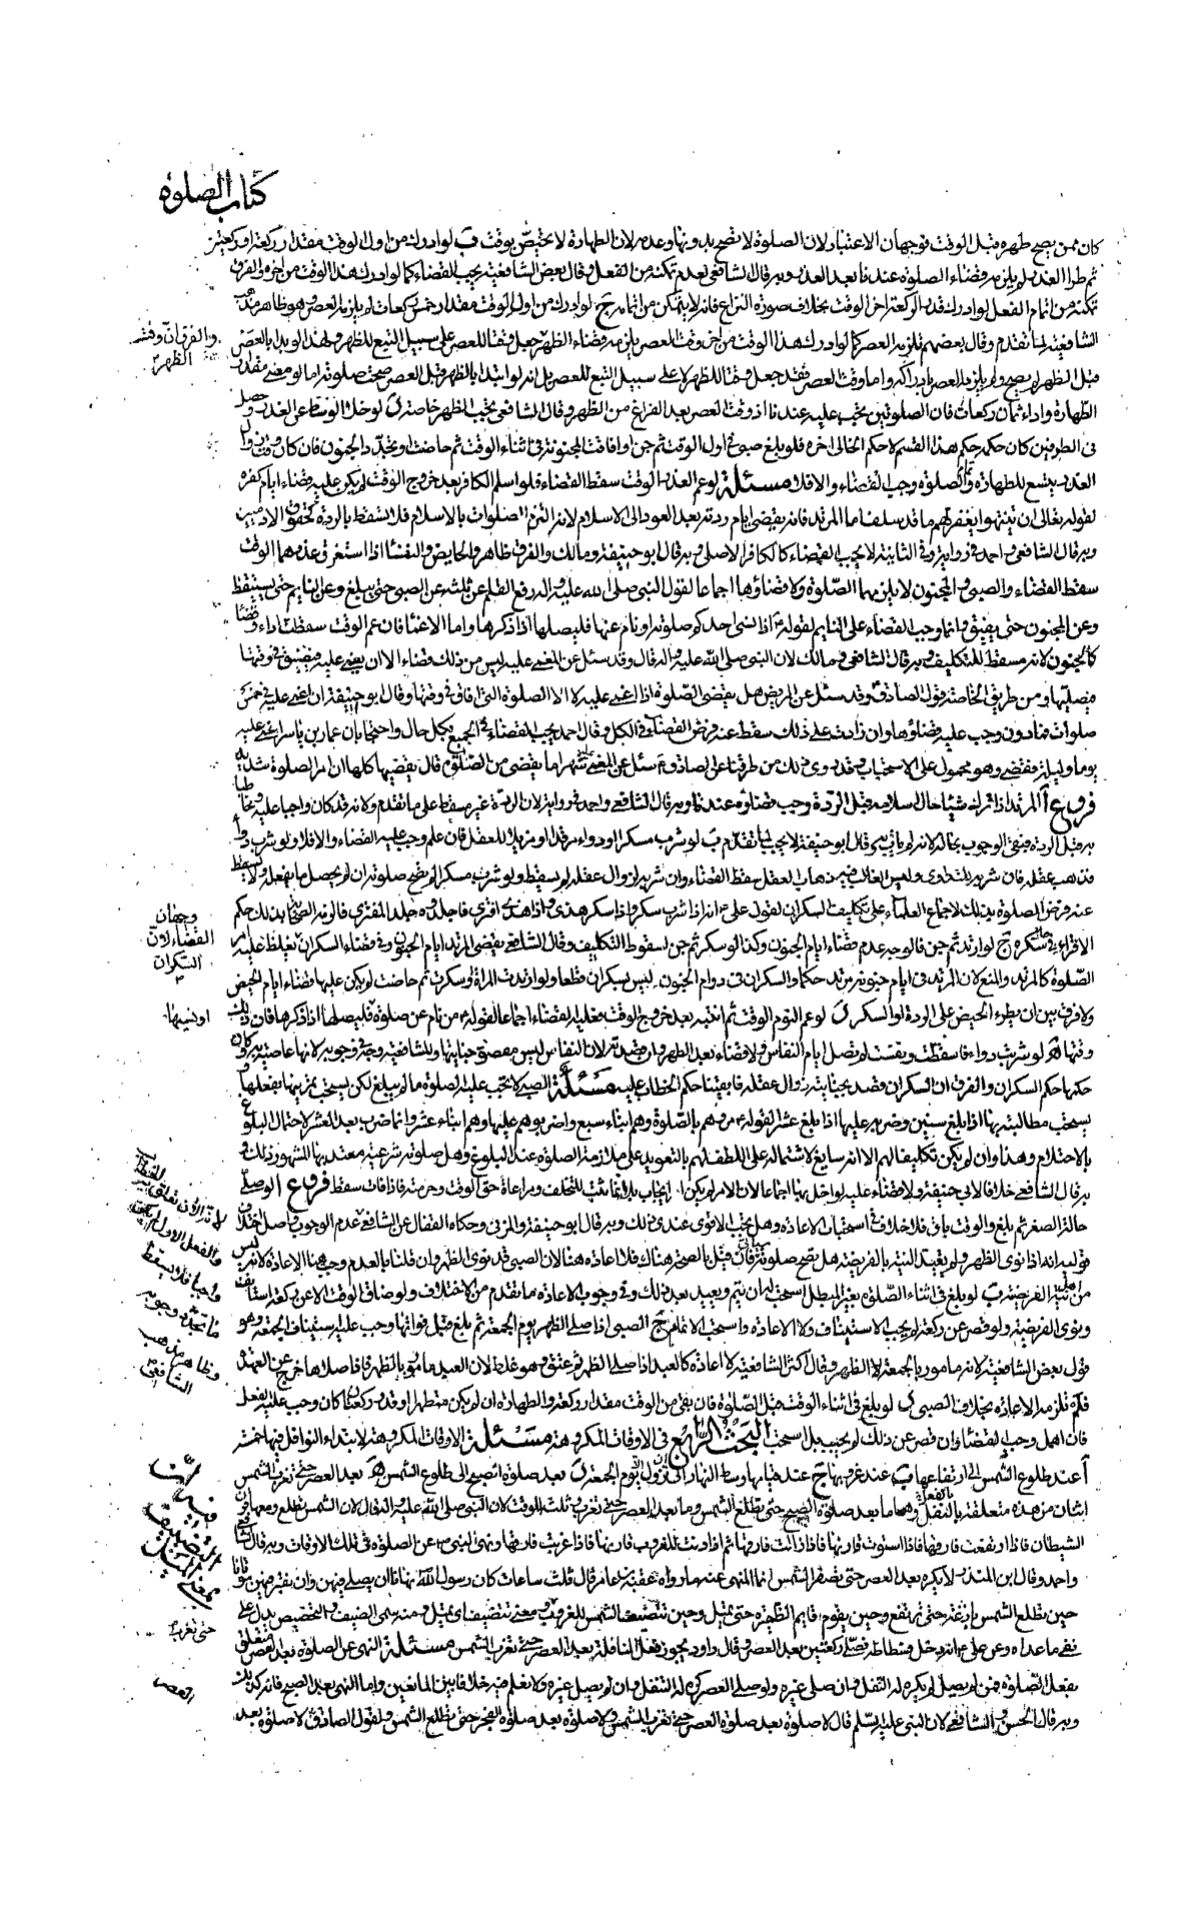 كتاب الصلوة
كان ممن يصح طهره قبل الوقت فوجهان الاعتبار لان الصلوة لا تصح بدونها وعدمه لان الطهارة لا تختص بوقت ب لو ادرك من اول الوقت مقدار ركعة او ركعتين
ثم طرا العذر لم يلزمه قضاء الصلوة عندنا بعد العذر وبه قال الشافعي لعدم تمكنه من الفعل وقال بعض الشافعية يجب القضاء كما لو ادرك هذا الوقت من اخره والفرق
تمكنه من اتمام الفعل لو ادرك قدر الركعة اخر الوقت بخلاف صورة النزاع فانه لا يتمكن من اتمامه ج لو ادرك من اول الوقت مقدار خمس ركعات لم يلزمه العصر وهو ظاهر مذهب
الشافعية لما تقدم وقال بعضهم تلزمه العصر كما لو ادرك هذا الوقت من اخر وقت العصر يلزمه قضاء الظهر جعل وقتا للعصر على سبيل التبع للظهر ولهذا لو بدا بالعصر
والفرق ان وقت
الظهر
قبل الظهر لم يصح ولم يلزمه العصر واما وقت العصر فقد جعل وقتا للظهر لا على سبيل التبع للعصر بل انه لو ابتدا بالظهر قبل العصر صحت صلوته اما لو مضى مقدار
الطهارة واداء ثمان ركعات فان الصلوتين يجب عليه عندنا اذ وقت العصر بعد الفراغ من الظهر وقال الشافعي يجب الظهر خاصة د لو خلا الوسط عن العذر وحصل
في الطرفين كان حكمه حكم هذا القسم لا حكم الخالي اخره فلو بلغ صبي في اول الوقت ثم جن او افاقت المجنونة في اثناء الوقت ثم حاضت او تجدد الجنون فان كان وقت زوال
العذر يتسع للطهارة وتمام الصلوة وجب القضاء والا فلا مسئلة لو عم العذر الوقت سقط القضاء فلو اسلم الكافر بعد خروج الوقت لم يكن عليه قضاء ايام كفره
لقوله تعالى ان ينتهوا يغفر لهم ما قد سلف اما المرتد فانه يقضي ايام ردته بعد العود الى الاسلام لانه التزم الصلوات بالاسلام فلا تسقط بالردة كحقوق الادميين
وبه قال الشافعي واحمد في رواية وفي الثانية لا يجب القضاء كالكافر الاصلي وبه قال ابو حنيفة ومالك والفرق ظاهر والحايض والنفساء اذا استغرق عذرهما الوقت
سقط القضاء والصبي والمجنون لا يلزمهما الصلوة ولا قضاؤها اجماعا لقول النبي صلى الله عليه وآله رفع القلم عن ثلثة عن الصبي حتى يبلغ وعن النايم حتى يستيقظ
وعن المجنون حتى يفيق وانما وجب القضاء على النايم لقوله ع اذا نسي احدكم صلوته او نام عنها فليصلها اذا ذكرها واما الاغماء فان عم الوقت سقطت اداء وقضاء
كالمجنون لانه مسقط للتكليف وبه قال الشافعي ومالك لان النبي صلى الله عليه وآله قال وقد سئل عن المغمى عليه ليس من ذلك قضاء الا ان يغمى عليه فيفيق في وقتها
فيصليها ومن طريق الخاصة قول الصادق ع وقد سئل عن المريض هل يقضي الصلوة اذا اغمي عليه لا الا الصلوة التي افاق في وقتها وقال ابو حنيفة ان اغمي عليه في خمس
صلوات فما دون وجب عليه قضاؤها وان زادت على ذلك سقط عنه فرض القضاء في الكل وقال احمد يجب القضاء في الجميع بكل حال واحتجا بان عمار بن ياسر اغمي عليه
يوما وليلة فقضى وهو محمول على الاستحباب وقد روى ذلك من طرقنا عن الصادق ع سئل عن المغمى عليه شهرا ما يقضي من الصلوة قال يقضيها كلها ان امر الصلوة شديد
فروع آ المرتد اذا ترك شيئا حال اسلامه قبل الردة وجب قضاؤه عندنا وبه قال الشافعي واحمد في رواية لان الردة غير مسقط على ما تقدم ولانه قد كان واجبا عليه ومخاطبا
به قبل الردة فبقي الوجوب بحاله لانه لم يات به وقال ابو حنيفة لا يجب لما تقدم ب لو شرب مسكرا او دواء مرقدا او مزيلا للعقل فان علم وجب عليه القضاء والا فلا ولو شرب دواء
فذهب عقله فان شربه للتداوي وليس الغالب فيه ذهاب العقل سقط القضاء وان شربه لزوال عقله لم يسقط ولو شرب مسكرا لم تصح صلوته ان لم يحصل ما يفعله ولا يسقط
عنه فرض الصلوة بذلك لاجماع العلماء على تكليف السكران لقول علي ع انه اذا شرب سكر واذا سكر هذى واذا هذى افترى فاجلدوه جلد المفتري فالزمه الصحابة بذلك حكم
وجهان
القضاء لان
السكران
الافتراء في حال سكره ج لو ارتد ثم جن فالوجه عدم قضاء ايام الجنون وكذا لو سكر ثم جن لسقوط التكليف وقال الشافعي يقضي المرتد ايام الجنون وفي قضاء السكران يغلظ عليه امر
الصلوة كالمرتد والمنع لان المرتد في ايام جنونه مرتد حكما والسكران في دوام الجنون ليس بسكران قطعا ولو ارتدت المراة او سكرت ثم حاضت لم يكن عليها قضاء ايام الحيض
او نسيها
ولا فرق بين ان يطرء الحيض على الردة او السكر د لو عم النوم الوقت ثم انتبه بعد خروج الوقت فعليه القضاء اجماعا لقوله ع من نام عن صلوة فليصلها اذا ذكرها فان ذلك
وقتها ه لو شربت دواء فاسقطت ونفست لم تصل ايام النفاس ولا قضاء بعد الطهر وان قصدته لان النفاس ليس مقصود جنايتها وللشافعية وجه في وجوبه لانها عاصية به وكان
حكمها حكم السكران والفرق ان السكران قصد بجنايته زوال عقله فابقينا حكم الخطاب عليه مسئلة الصبي لا يجب عليه الصلوة ما لم يبلغ لكن يستحب تمرينها بفعلها و
يستحب مطالبته بها اذا بلغ سبع سنين وضربه عليها اذا بلغ عشرا لقوله ع مروهم بالصلوة وهم ابناء سبع واضربوهم عليها وهم ابناء عشر وانما ضرب بعد العشر لاحتمال البلوغ
بالاحتلام وهذا وان لم يكن تكليفا لهم الا انه سايغ لاشتماله على اللطف لهم بالتعويد على ملازمة الصلوة عند البلوغ وهل صلوته شرعية معتد بها المشهور ذلك و
به قال الشافعي خلافا لابي حنيفة ولا قضاء عليه لو اخل بها اجماعا لان الامر لم يكن ايجاب بل انما ثبت للتخلف ومراعاة حق الوقت وحرمته فاذا فات سقط فروع آ لو صلى
حالة الصغر ثم بلغ والوقت باق فلا خلاف في استحباب الاعادة وهل يجب الاقوى عندي ذلك وبه قال ابو حنيفة والمزني وحكاه القفال عن الشافعي عدم الوجوب واصل اختلاف
قوليه انه اذا نوى الظهر ولم يقيد النية بالفريضة هل يصح صلوته فان قيل بالصحة هناك فلا اعادة هنا لان الصبي قد نوى الظهر وان قلنا بالعدم وجب هنا الاعادة لانه ليس
من اهل نية الفريضة ب لو بلغ في اثناء الصلوة بغير المبطل استحب له ان يتم ويعيد بعد ذلك وفي وجوب الاعادة ما تقدم من الاختلاف ولو ضاق الوقت الا عن ركعة استانف
ونوى الفريضة ولو قصر عن ركعة لم يجب الاستيناف ولا الاعادة واستحب الاتمام ج الصبي اذا صلى الظهر يوم الجمعة ثم بلغ قبل فواتها وجب عليه استيناف الجمعة وهو
قول بعض الشافعية لانه مامور بالجمعة لا الظهر وقال اكثر الشافعية لا اعادة كالعبد اذا صلى الظهر ثم عتق وهو غلط لان العبد مامور بالظهر فاذا صلاها خرج عن العهدة و
فلم تلزمه الاعادة بخلاف الصبي د لو بلغ في اثناء الوقت قبل الصلوة فان بقي من الوقت مقدار ركعة والطهارة ان لم يكن متطهرا او قدر ركعة ان كان وجب عليه الفعل
فان اهمل وجب القضاء وان قصر عن ذلك لم يجب بل استحب البحث الرابع في الاوقات المكروهة مسئلة الاوقات المكروهة لابتداء النوافل فيها خمسة
آ عند طلوع الشمس الى ارتفاعها ب عند غروبها ج عند قيامها وسط النهار الى ان تزول الا يوم الجمعة د بعد صلوة الصبح الى طلوع الشمس ه بعد العصر حتى تغرب الشمس
اثنان من هذه متعلقة بالفعل وهما ما بعد صلوة الصبح حتى تطلع الشمس وما بعد العصر حتى تغرب وثلث للوقت لان النبي صلى الله عليه وآله قال ان الشمس تطلع ومعها قرن
الشيطان فاذا ارتفعت فارقها فاذا استوت قارنها فاذا زالت فارقها ثم اذا دنت للغروب قارنها فاذا غربت فارقها ونهى النبي ص عن الصلوة في تلك الاوقات وبه قال الشافعي
واحمد وقال ابن المنذر لا يكره بعد العصر حتى تصفر الشمس انما المنهي عنه ما رواه عقبة بن عامر قال ثلث ساعات كان رسول الله ص نهانا ان نصلي فيهن وان نقبر فيهن موتانا
حين تطلع الشمس بازغة حتى ترتفع وحين يقوم قايم الظهيرة حتى تميل وحين تتضيف الشمس للغروب ومعنى تتضيف اي تميل ومنه سمى الضيف والتخصيص يدل على
نفي ما عداه وعن علي ع انه دخل فسطاطه فصلى ركعتين بعد العصر وقال داود يجوز فعل النافلة بعد العصر حتى تغرب الشمس مسئلة النهي عن الصلوة بعد العصر متعلق
بفعل الصلوة فمن لم يصل لم يكره له التنفل وان صلى غيره ولو صلى العصر كره له التنفل وان لم يصل غيره ولا نعلم فيه خلافا بين المانعين واما النهي بعد الصبح فانه كذلك
وبه قال الحسن والشافعي لان النبي عليه السلم قال لا صلوة بعد صلوة العصر حتى تغرب الشمس ولا صلوة بعد صلوة الفجر حتى تطلع الشمس ولقول الصادق ع لا صلوة بعد
حتى تغرب
العصر